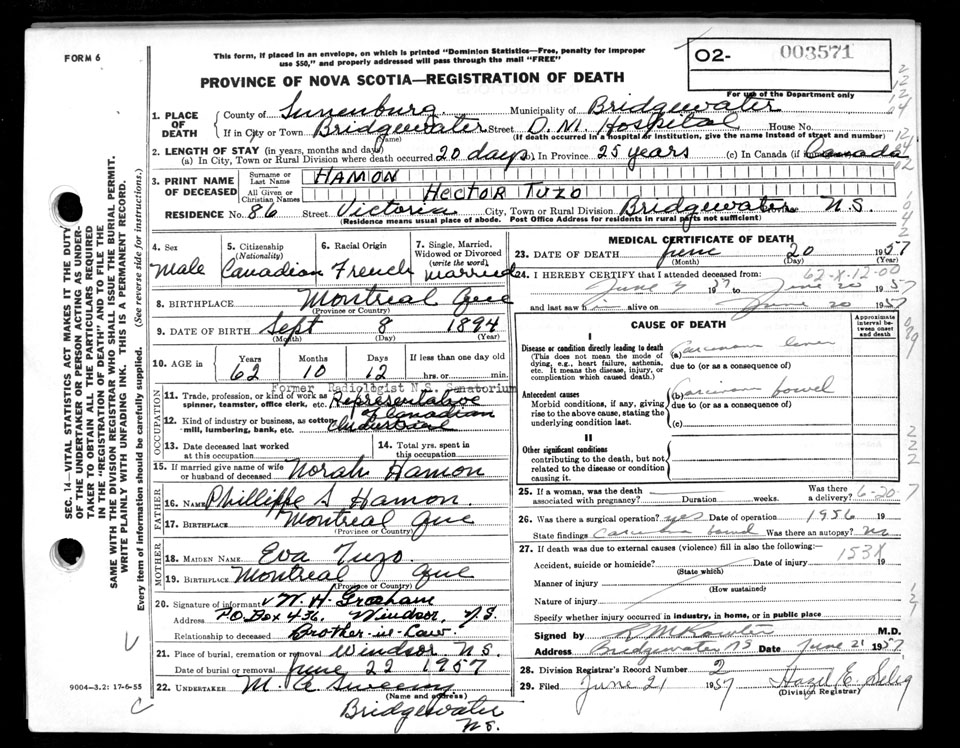 FORM 6
This form, if placed in an envelope, on which is printed "Dominion Statistics—Free, penalty for improper
use $50," and properly addressed will pass through the mail "FREE"
O2- 003571
For use of the Department only
PROVINCE OF NOVA SCOTIA—REGISTRATION OF DEATH
1. PLACE OF DEATH County of Lunenburg Municipality of Bridgewater
If in City or Town Bridgewater Street D. M. Hospital House No.
(Name) (If death occurred in a hospital or institution, give the name instead of street and number)
2. LENGTH OF STAY (in years, months and days)
(a) In City, Town or Rural Division where death occurred 20 days (b) In Province 25 years (c) In Canada (if immigrant) Canada
3. PRINT NAME OF DECEASED Surname or Last Name HAMON
All Given or Christian Names HECTOR TUZO
RESIDENCE No. 86 Street Victoria City, Town or Rural Division Bridgewater Province N.S.
(Residence means usual place of abode. Post Office Address for residents in rural parts not sufficient)
4. Sex Male
5. Citizenship (Nationality) Canadian
6. Racial Origin French
7. Single, Married, Widowed or Divorced (write the word) Married
8. BIRTHPLACE Montreal Que
(Province or Country)
9. DATE OF BIRTH Sept 8 1894
(Month) (Day) (Year)
10. AGE in Years Months Days If less than one day old
62 10 12 hrs. or min.
Former Radiologist N.S. Sanatorium
OCCUPATION
11. Trade, profession, or kind of work as spinner, teamster, office clerk, etc. Representative
12. Kind of industry or business, as cotton mill, lumbering, bank, etc. of Canadian Industrial
13. Date deceased last worked at this occupation
14. Total yrs. spent in this occupation
15. If married give name of wife or husband of deceased Norah Hamon
FATHER
16. NAME Phillippe S Hamon
17. BIRTHPLACE Montreal Que
(Province or Country)
MOTHER
18. MAIDEN NAME Eva Tuzo
19. BIRTHPLACE Montreal Que
(Province or Country)
20. Signature of informant W. H. Graham
Address P.O. Box 436, Windsor, N.S.
Relationship to deceased Brother-in-Law
21. Place of burial, cremation or removal Windsor N.S.
Date of burial or removal June 22 1957
22. UNDERTAKER M. A. Sweeny
(Name and address)
Bridgewater
N.S.
9004-3.2: 17-6-55
SEC. 14—VITAL STATISTICS ACT MAKES IT THE DUTY
OF THE UNDERTAKER OR PERSON ACTING AS UNDER-
TAKER TO OBTAIN ALL THE PARTICULARS REQUIRED
IN THE "REGISTRATION OF DEATH" AND TO FILE THE
SAME WITH THE DIVISION REGISTRAR WHO SHALL ISSUE THE BURIAL PERMIT.
WRITE PLAINLY WITH UNFADING INK. THIS IS A PERMANENT RECORD.
Every item of information should be carefully supplied. (See reverse side for instructions.)
MEDICAL CERTIFICATE OF DEATH
23. DATE OF DEATH June 20 1957
(Month) (Day) (Year)
62-X-12-00
24. I HEREBY CERTIFY that I attended deceased from:
June 3 57 to June 20 1957
and last saw h alive on June 20 1957
CAUSE OF DEATH
Approximate interval between onset and death
I
Disease or condition directly leading to death
(This does not mean the mode of dying, e.g., heart failure, asthenia, etc. It means the disease, injury, or complication which caused death.)
(a) Carcinoma
due to (or as a consequence of)
Antecedent causes
Morbid conditions, if any, giving rise to the above cause, stating the underlying condition last.
(b) Carcinoma bowel
due to (or as a consequence of)
(c)
II
Other significant conditions
contributing to the death, but not related to the disease or condition causing it.
25. If a woman, was the death associated with pregnancy? Duration weeks. Was there a delivery? 6-20-7
26. Was there a surgical operation? yes Date of operation 1956 19
State findings Carcinoma bowel Was there an autopsy? no
27. If death was due to external causes (violence) fill in also the following:—
153X
Accident, suicide or homicide? Date of injury 19
(State which)
Manner of injury
(How sustained)
Nature of injury
Specify whether injury occurred in industry, in home, or in public place
Signed by M.D.
Address Bridgewater NS Date June 21 1957
28. Division Registrar's Record Number 2
29. Filed June 21 1957 Hazel E. Selig
(Division Registrar)